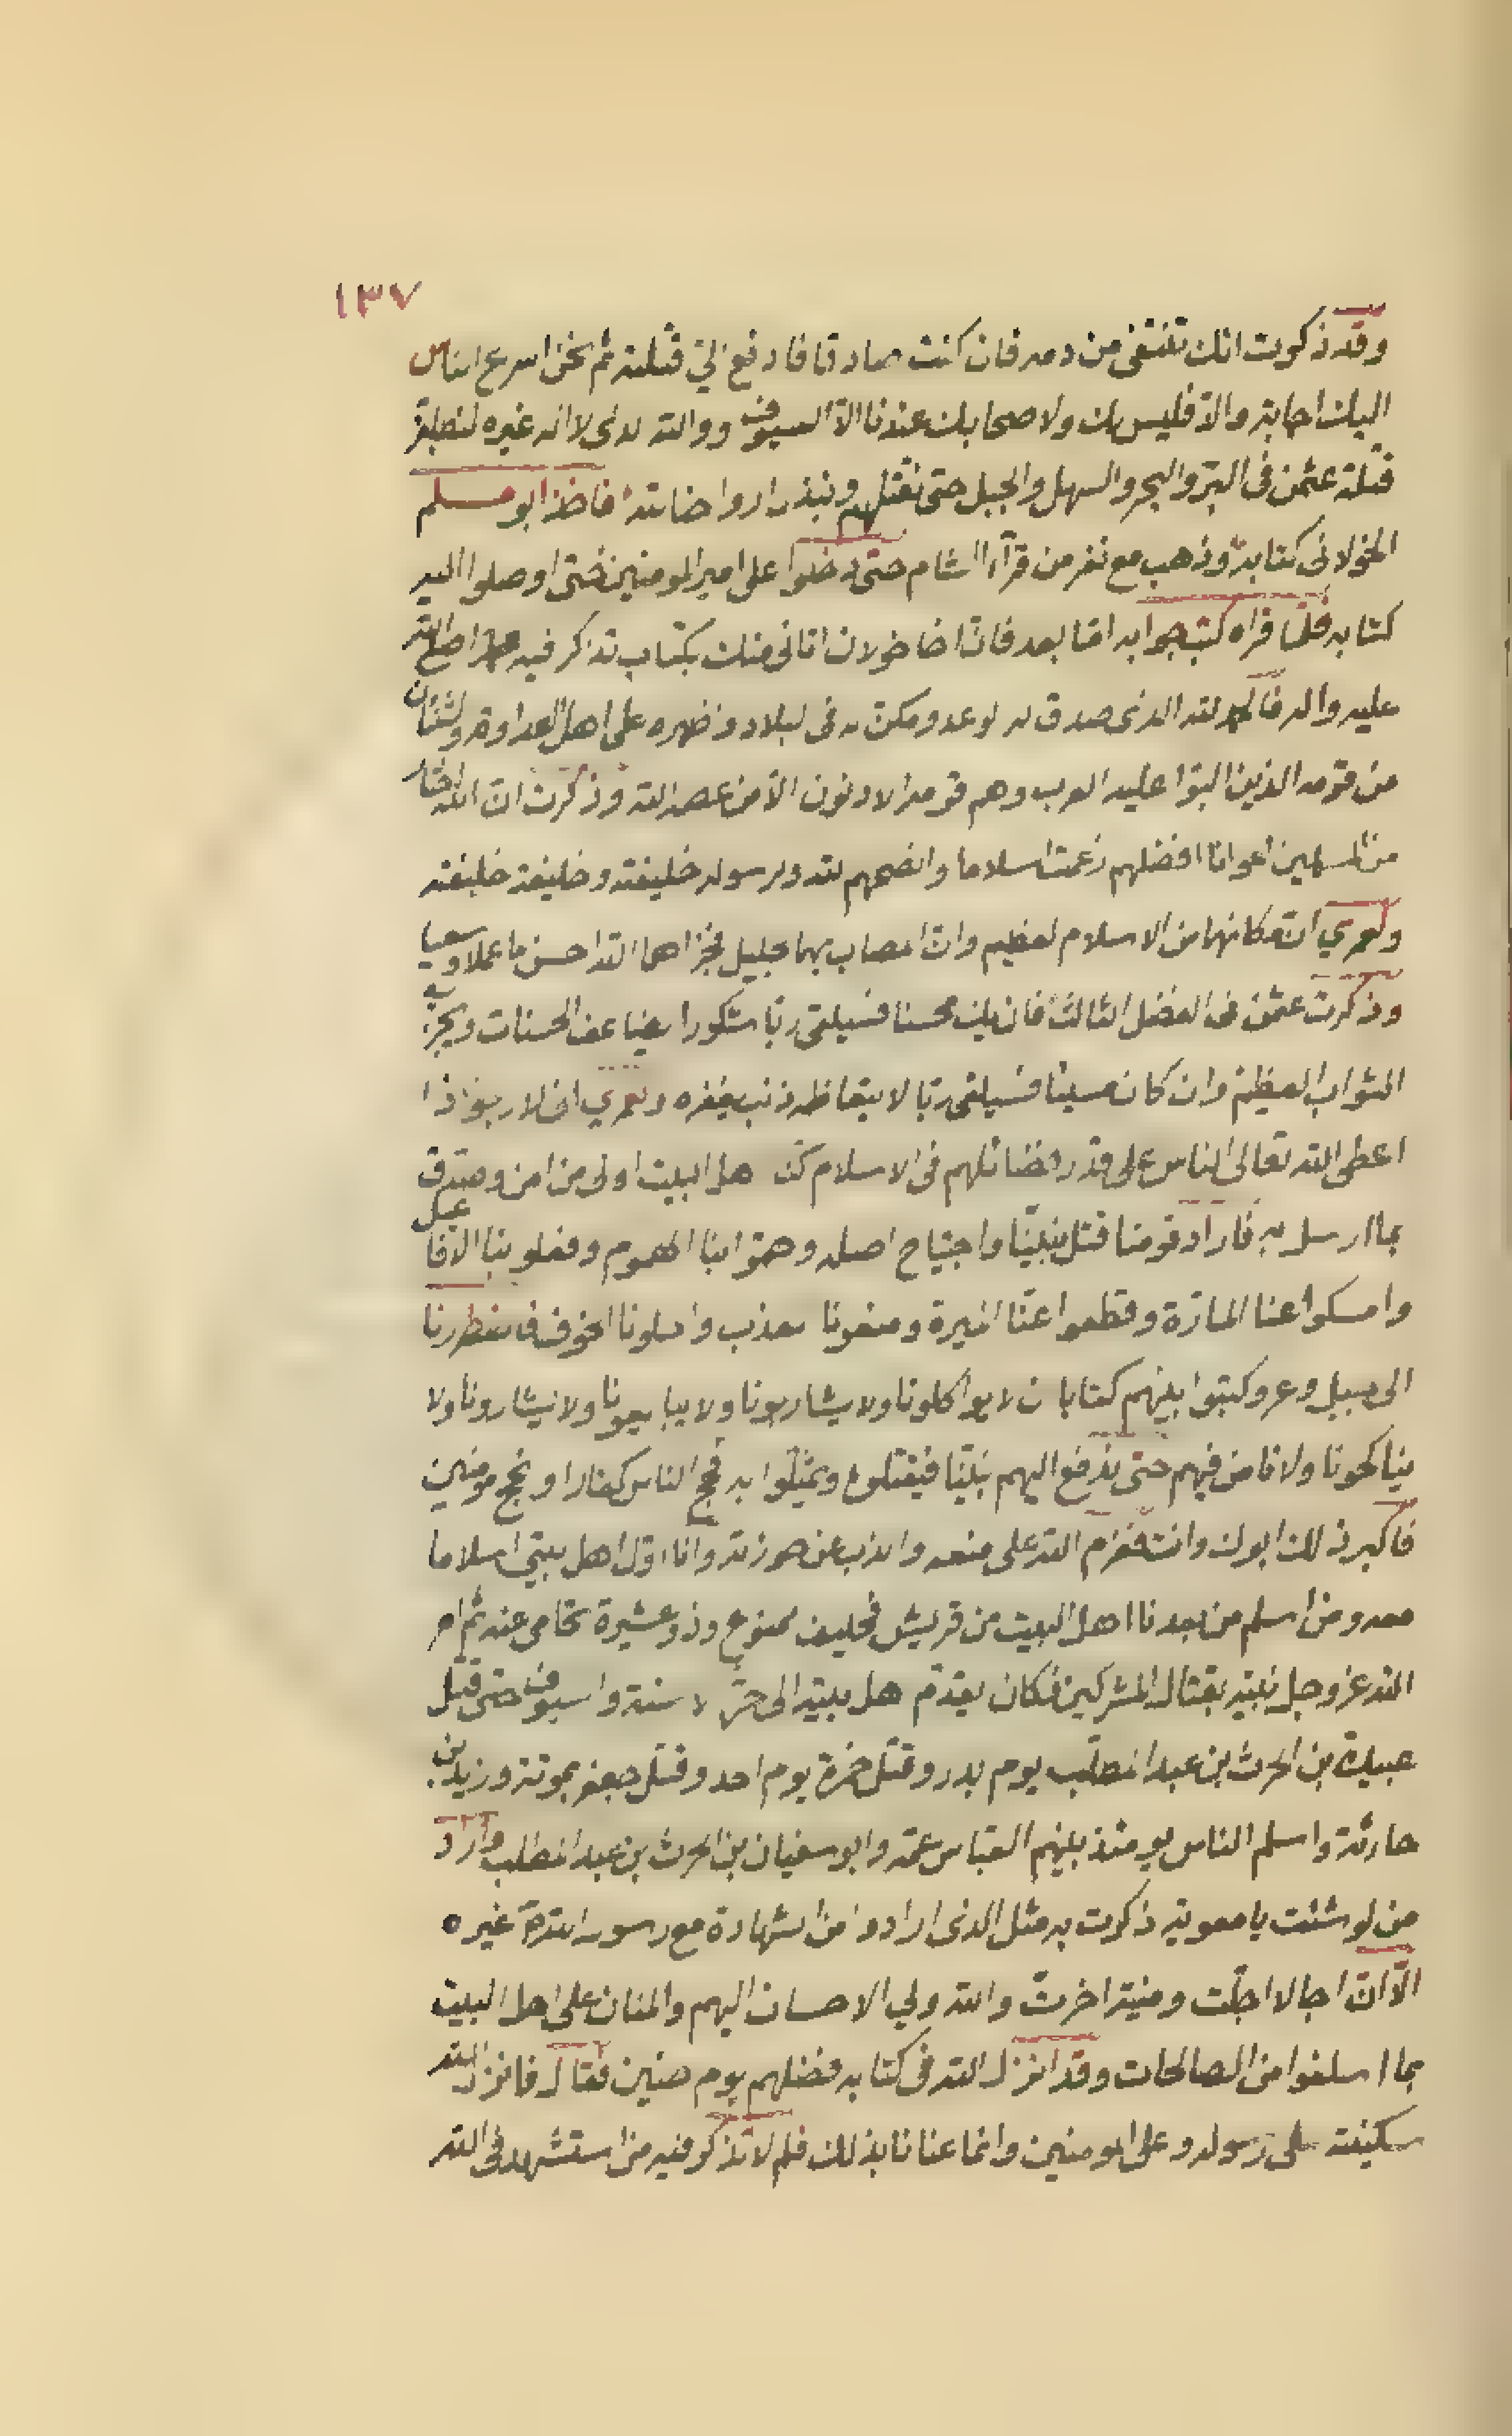 ١٣٧
وقد ذكرت انك تنتفى من دمه فان كنت صادقا فادفع الىّ قتلته ثم نحن اسرع الناس
اليك اجابة والا فليس لك ولاصحابك عندنا الا السيوف ووالله لذى لا اله غيره لنطلبنّ
قتلة عثمن فى البرّ والبحر والسهل والجبل حتى نقتلهم و فاخذ ابو مسلم
الخولانى كتابه وذهب مع نفر من قرآء الشام حتى دخلوا على امير المومنين حتى اوصلوا اليه
كتابه فلمّا قراه كتب جوابه امّا بعد فانّ اخا خولان اتانى منك بكتاب تذكر فيه الله
عليه واله فالحمد لله الذى صدق له لوعد ومكن له فى لبلاد وظهره على اهل العداوة ولشنان
من قومه الذين البوا عليه العرب وهم قومه الادنون الا من عصم الله وذكرت ان الله اختار
من المسلمين اعوانا افضلهم زعمت اسلاما وانصحهم لله ولرسوله خليفته وخليفة خليفته
ولعمري انّ مكانهما من الاسلام لعظيم وان المصاب بهما جليل فجزاهما الله احسن ما عملا وسعيا
وذكرت عثمن فى الفضل الثالث فان يك محسنا فسيلقى ربّا شكورا يضاعف الحسنات ويجزى
الثواب العظيم وان كان مسيئا فسيلقى ربّا لا يتعاظمه ذنب يغفره ولعمري انى لارجو اذا
اعطى الله تعالى الناس على قدر فضائلهم فى الاسلام كنّا هل البيت اولى من امن وصدّق
بما ارسل به فاراد قومنا قتل نبيّنا واجتياح اصله وهمّوا بنا الهموم وفعلوا بنا الافاعيل
وامسكوا عنا المادّة وقطعوا عنّا الميرة ومنعونا لعذب واحلونا الخوف فاضطرونا
الى جبل وعر وكتبوا بينهم كتابا ن لا يواكلونا ولا يشاربونا ولا يبايعونا ولا يشارونا ولا
يناكحونا ولا نامن فيهم حتى ندفع اليهم نبيّنا فيقتلوه ويمثّلوا به فحج الناس كفارا ونحج مومنين
فاكبر ذلك ابوك وانت فعزم الله على منعه والذب عن حوزته وانا اوّل اهل بيتى اسلاما
معه ومن اسلم من بعدنا اهل البيت من قريش فحليف ممنوع وذو عشيرة تحامى عنه ثم امر
الله عزوجل نبيّه بقتال المشركين فكان يقدّم هل بيته الى حرّ لاسنة والسيوف حتى قتل
عبيدة بن الحرث بن عبد المطلّب يوم بدر وقتل حمزة يوم احد وقتل جعفر بموتة وزيد بن
حارثة واسلم الناس يومئذ بينهم العبّاس عمّه وابو سفيان بن الحرث بن عبد المطلب واراد
من لو شئت يا معوية ذكرت به مثل الذى ارادوا من الشهادة مع رسول الله غيره
الّا انّ اجالا اجلّت ومنيّة اخرتّ والله ولي الاحسان اليهم والمنان على اهل البيت
بما اسلفوا من الصالحات وقد انزل الله فى كتابه فضلهم يوم حنين فقال فانزل الله
سكينته على رسوله وعلى المومنين وانما عنانا بذلك فلم لا تذكر فيه من استشهد فى الله